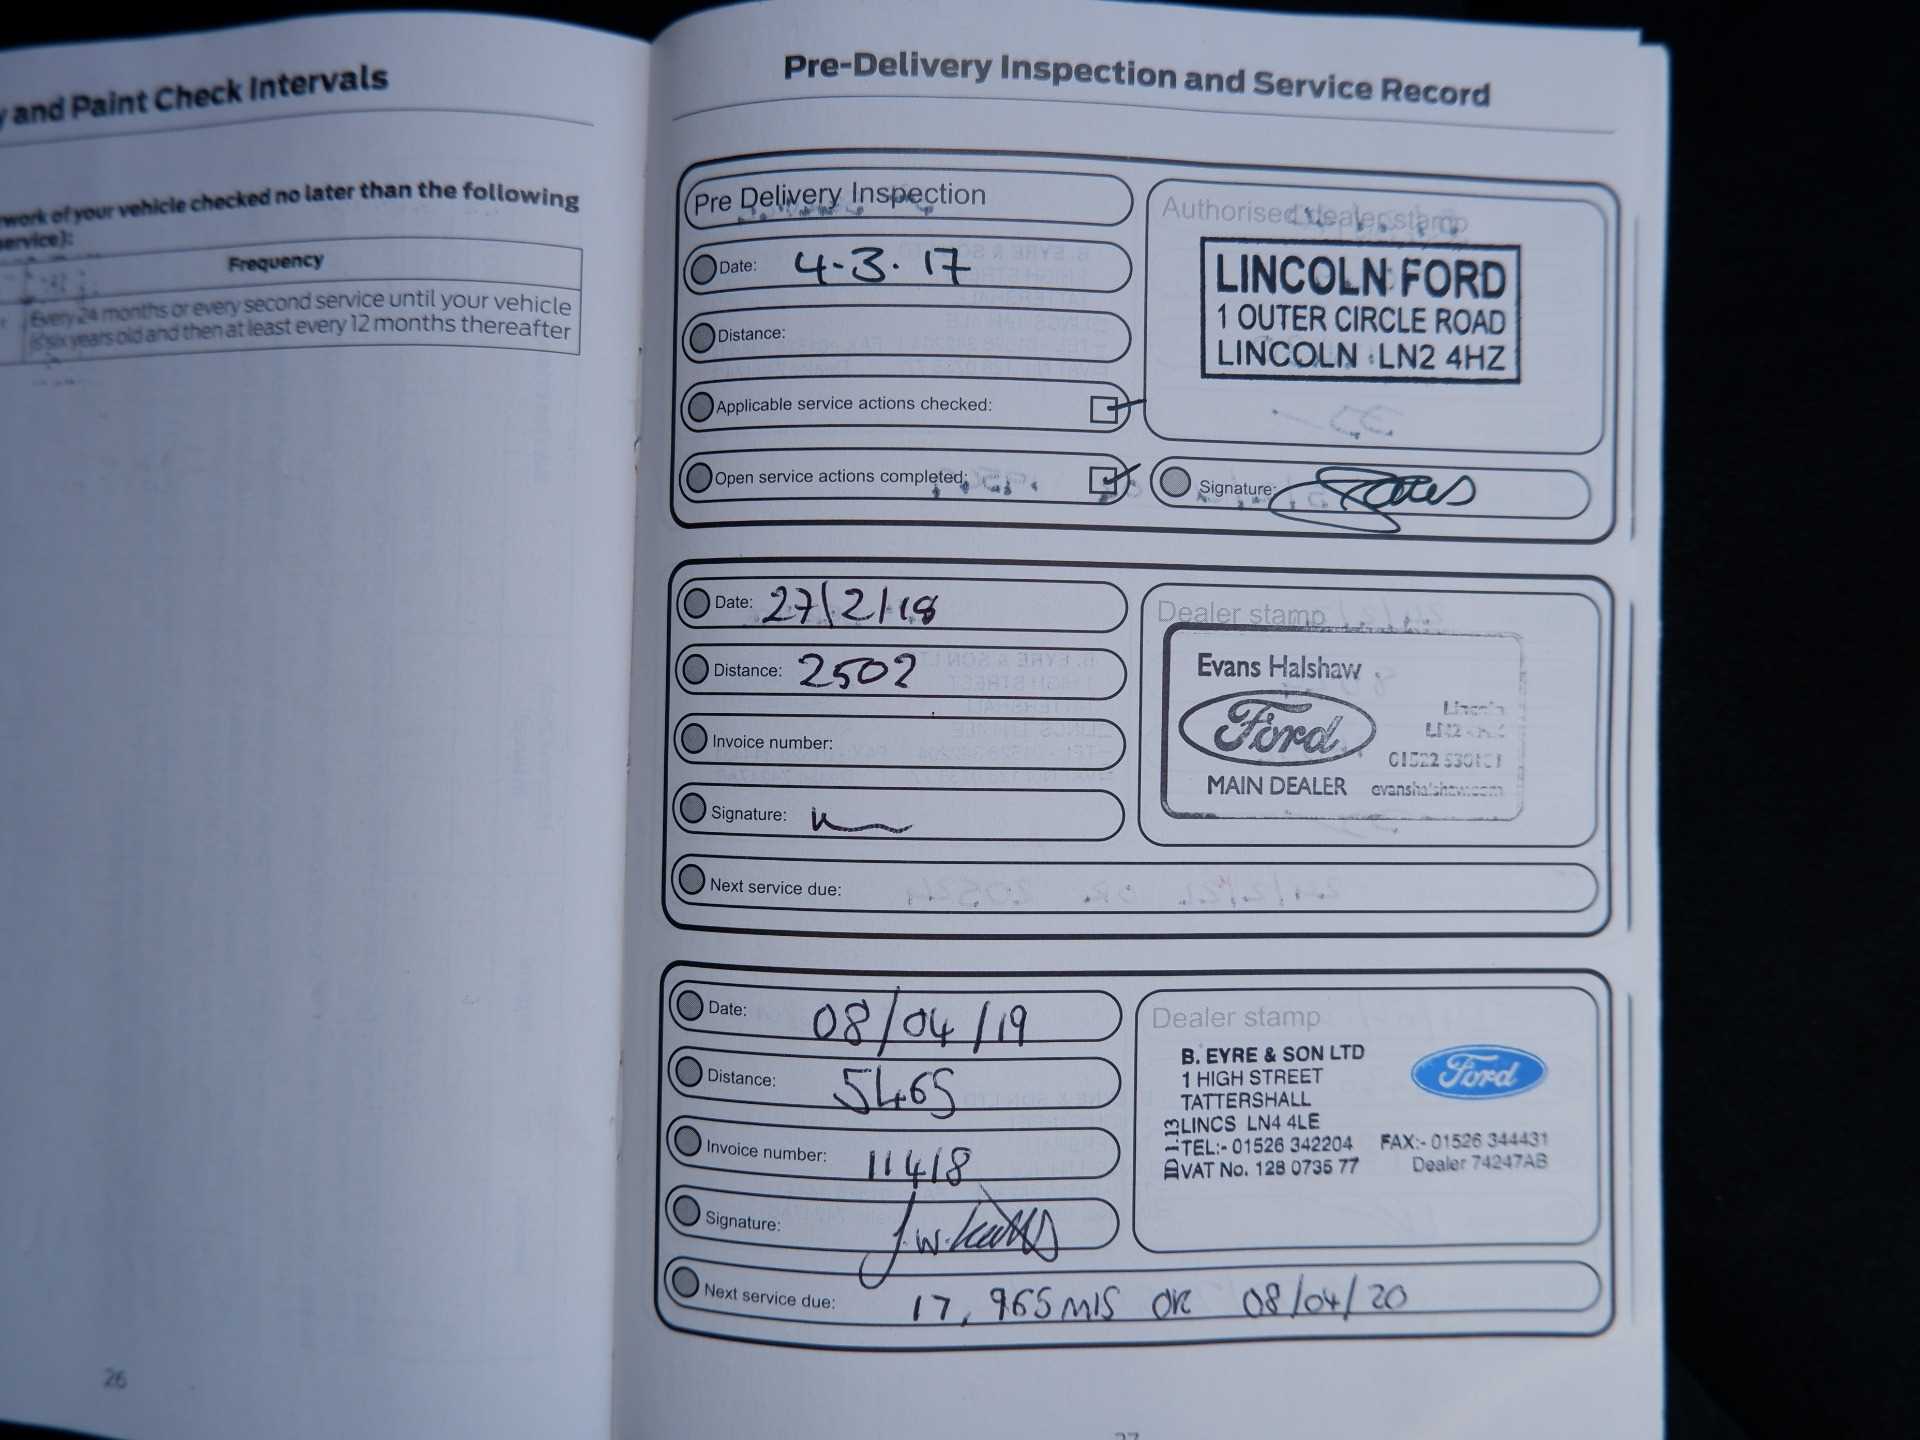 and Paint Check Intervals
work of your vehicle checked no later than the following
service):
Frequency
Every 24 months or every second service until your vehicle
is six years old and then at least every 12 months thereafter
26
Pre-Delivery Inspection and Service Record
Pre Delivery Inspection
Date: 4-3.17
Distance:
Applicable service actions checked:
Open service actions completed:
Authorised dealer stamp
LINCOLN FORD
1 OUTER CIRCLE ROAD
LINCOLN LN2 4HZ
Signature:
Date: 27/2/18
Distance: 2502
Invoice number:
Signature:
Next service due:
Dealer stamp
Evans Halshaw
Ford
MAIN DEALER
Lincoln
LN2
01522 530101
evanshalshaw.com
Date: 08/04/19
Distance: 5465
Invoice number: 11418
Signature: J.W.
Next service due: 17,965 MIS OR 08/04/20
Dealer stamp
B. EYRE & SON LTD
1 HIGH STREET
TATTERSHALL
LINCS LN4 4LE
TEL:- 01526 342204 FAX:- 01526 344431
VAT No. 128 0735 77 Dealer 74247AB
Ford
27